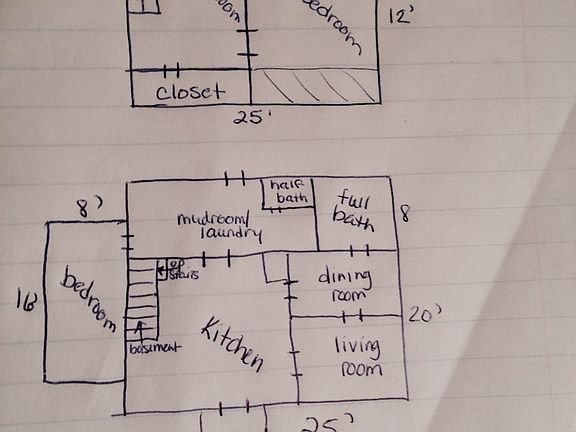 room
bedroom
12'
closet
25'
8'
half
bath
full
bath
8
mudroom/
laundry
up
stairs
dining
room
bedroom
16'
20'
basiment
Kitchen
living
room
25'